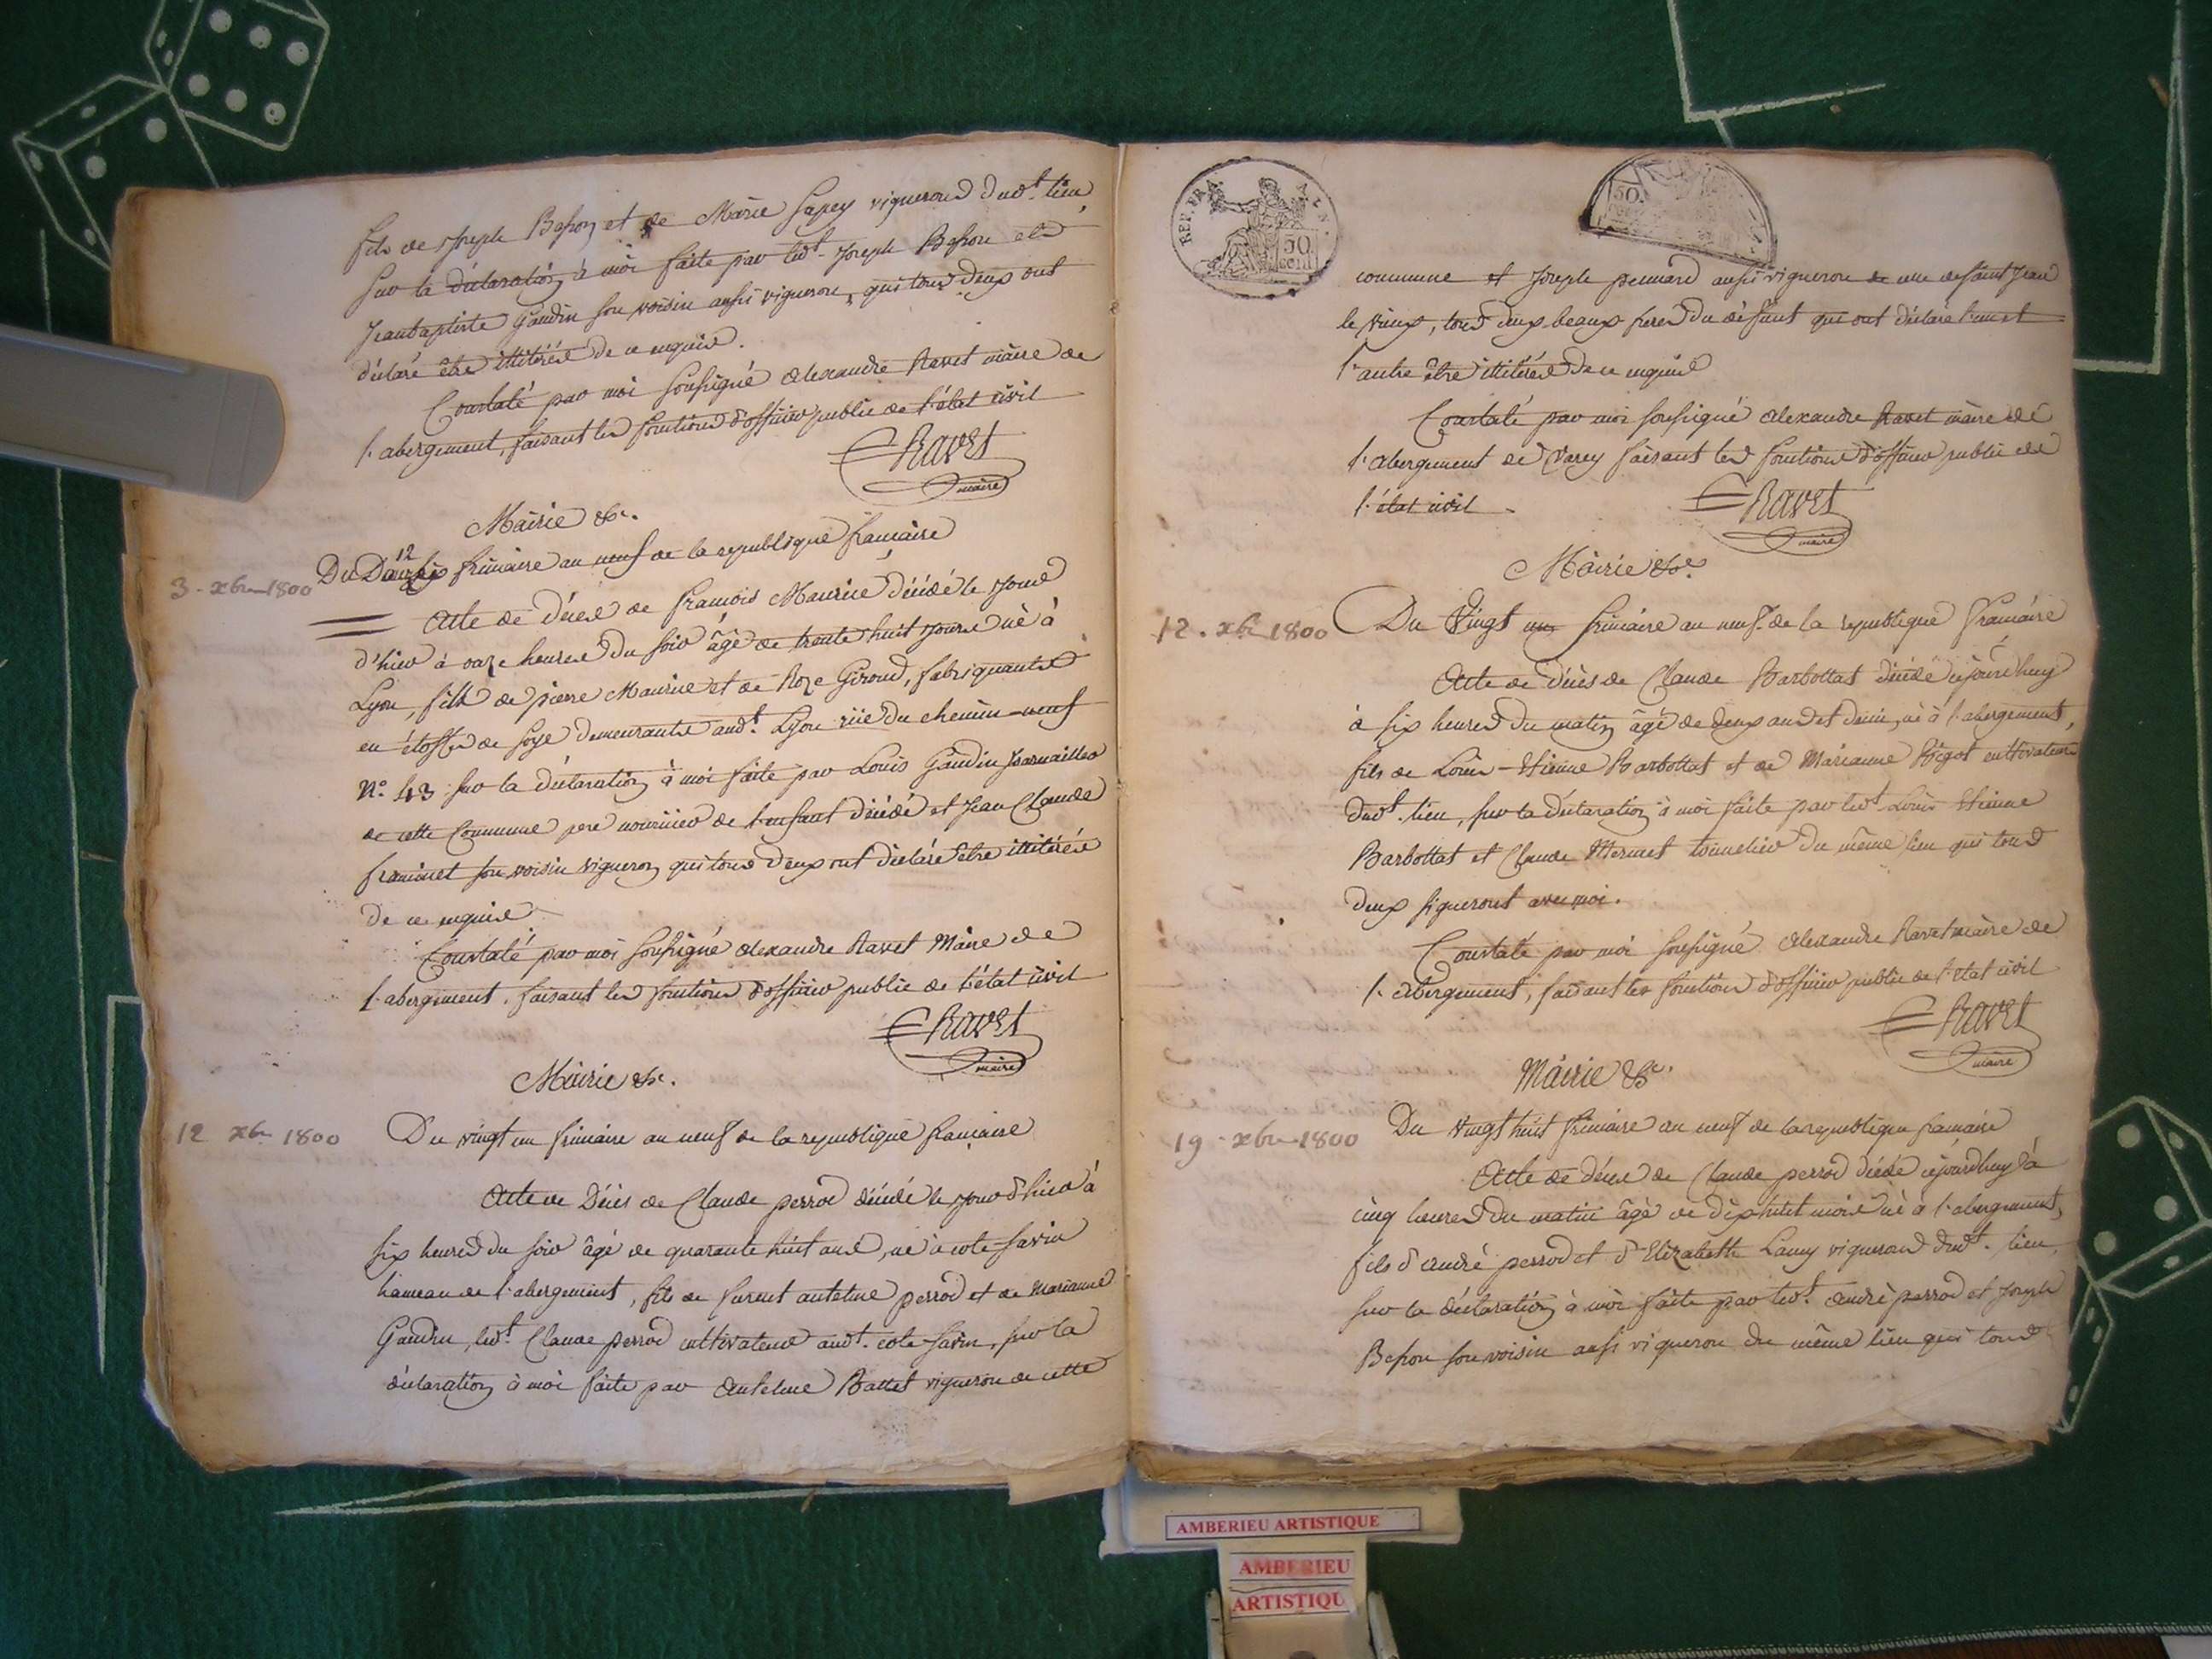 fils de Joseph Besson et de Marie Sapey vignerons dudt. lieu
sur la déclaration à moi faite par ledt. Joseph Besson et
Jeanbaptiste Gaudin son voisin aussi vigneron, qui tous deux ont
déclaré être illitérés de ce requis.
Constaté par moi soussigné Alexandre Ravet maire de
l'abergement, faisant les fonctions d'officier public de l'état civil
Ravet
maire
Mairie &c.
3 - xbre 1800
12
Du Douze frimaire an neuf de la republique française
Acte de décès de François Maurice décédé le jour
d'hier à onze heures du soir âgé de trente huit jours né à
Lyon, fils de pierre Maurice et de Roze Giroud, fabriquants
en étoffes de soye demeurants audt. Lyon rüe du chemin-neuf
N°. 43. sur la déclaration à moi faite par Louis Gaudin
de cette commune pere nourricier de l'enfant décédé et Jean Claude
francinet son voisin vigneron, qui tous deux ont déclaré être illitérés
de ce requis.
Constaté par moi soussigné Alexandre Ravet Maire de
l'abergement, faisant les fonctions d'officier public de l'état civil
Ravet
maire
Mairie &c.
12 xbre 1800
Du vingt un frimaire an neuf de la republique française
Acte de Décès de Claude perrod décédé le jour d'hier à
six heures du soir âgé de quarante huit ans, né à cote-savin
hameau de l'abergement, fils de furent antelme perrod et de Marianne
Gaudin, ledt. Claude perrod cultivateur audt. cote-savin, sur la
déclaration à moi faite par Antelme Battet vigneron de cette
REP. FRA.
50
CENT
50.
commune et Joseph pennard aussi vigneron de saint Jean
le vieux, tous deux beaux freres du défunt qui ont déclaré l'un et
l'autre être illitérés de ce requis
Constaté par moi soussigné Alexandre Ravet maire de
l'abergement de Varey faisant les fonctions d'officier public de
l'état civil.
Ravet
maire
Mairie &c.
12 . xbre 1800
Du Vingt un frimaire an neuf de la republique française
Acte de décès de Claude Barbottat décédé cejourdhuy
à six heures du matin âgé de deux ans et demi, né à l'abergement,
fils de Louis-Etienne Barbottat et de Marianne Bigot cultivateurs
dudt. lieu, sur la déclaration à moi faite par ledt. Louis Etienne
Barbottat et Claude Mermet tonnelier du même lieu qui tous
deux signeront avec moi.
Constaté par moi soussigné Alexandre Ravet maire de
l'abergement, faisant les fonctions d'officier public de l'état civil
Ravet
maire
Mairie &c.
19 - xbre 1800
Du Vingt huit frimaire an neuf de la republique française
Acte de décès de Claude perrod décédé cejourdhuy à
cinq heures du matin âgé de dix huit mois né à l'abergement,
fils d'André perrod et d'Elizabeth Lamy vignerons dudt. lieu,
sur la déclaration à moi faite par ledt. André perrod et Joseph
Besson son voisin aussi vigneron du même lieu qui tous
AMBERIEU ARTISTIQUE
AMBERIEU
ARTISTIQU